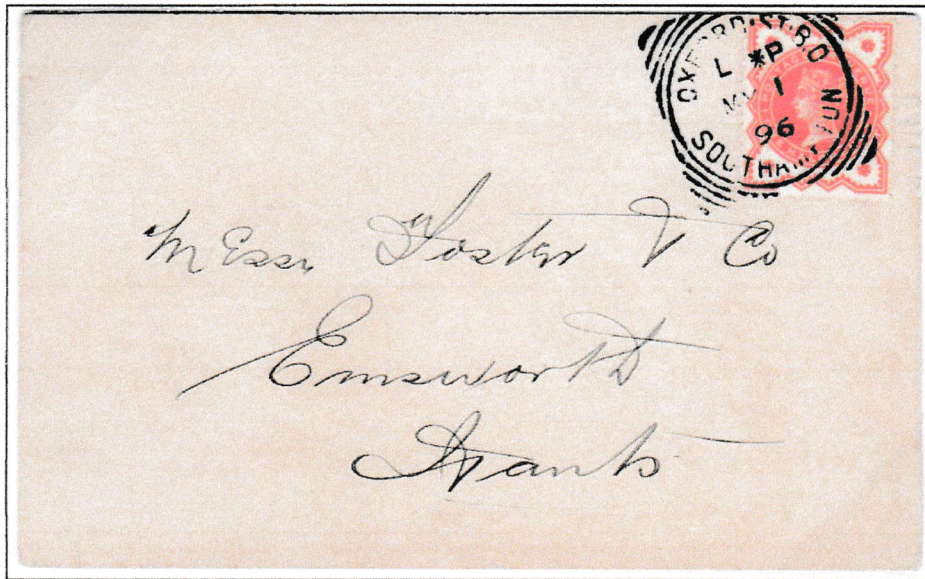 OXFORD.ST.B.O
L *P
MY 1
96
SOUTHAMPTON
Messrs Foster & Co
Emsworth
Hants